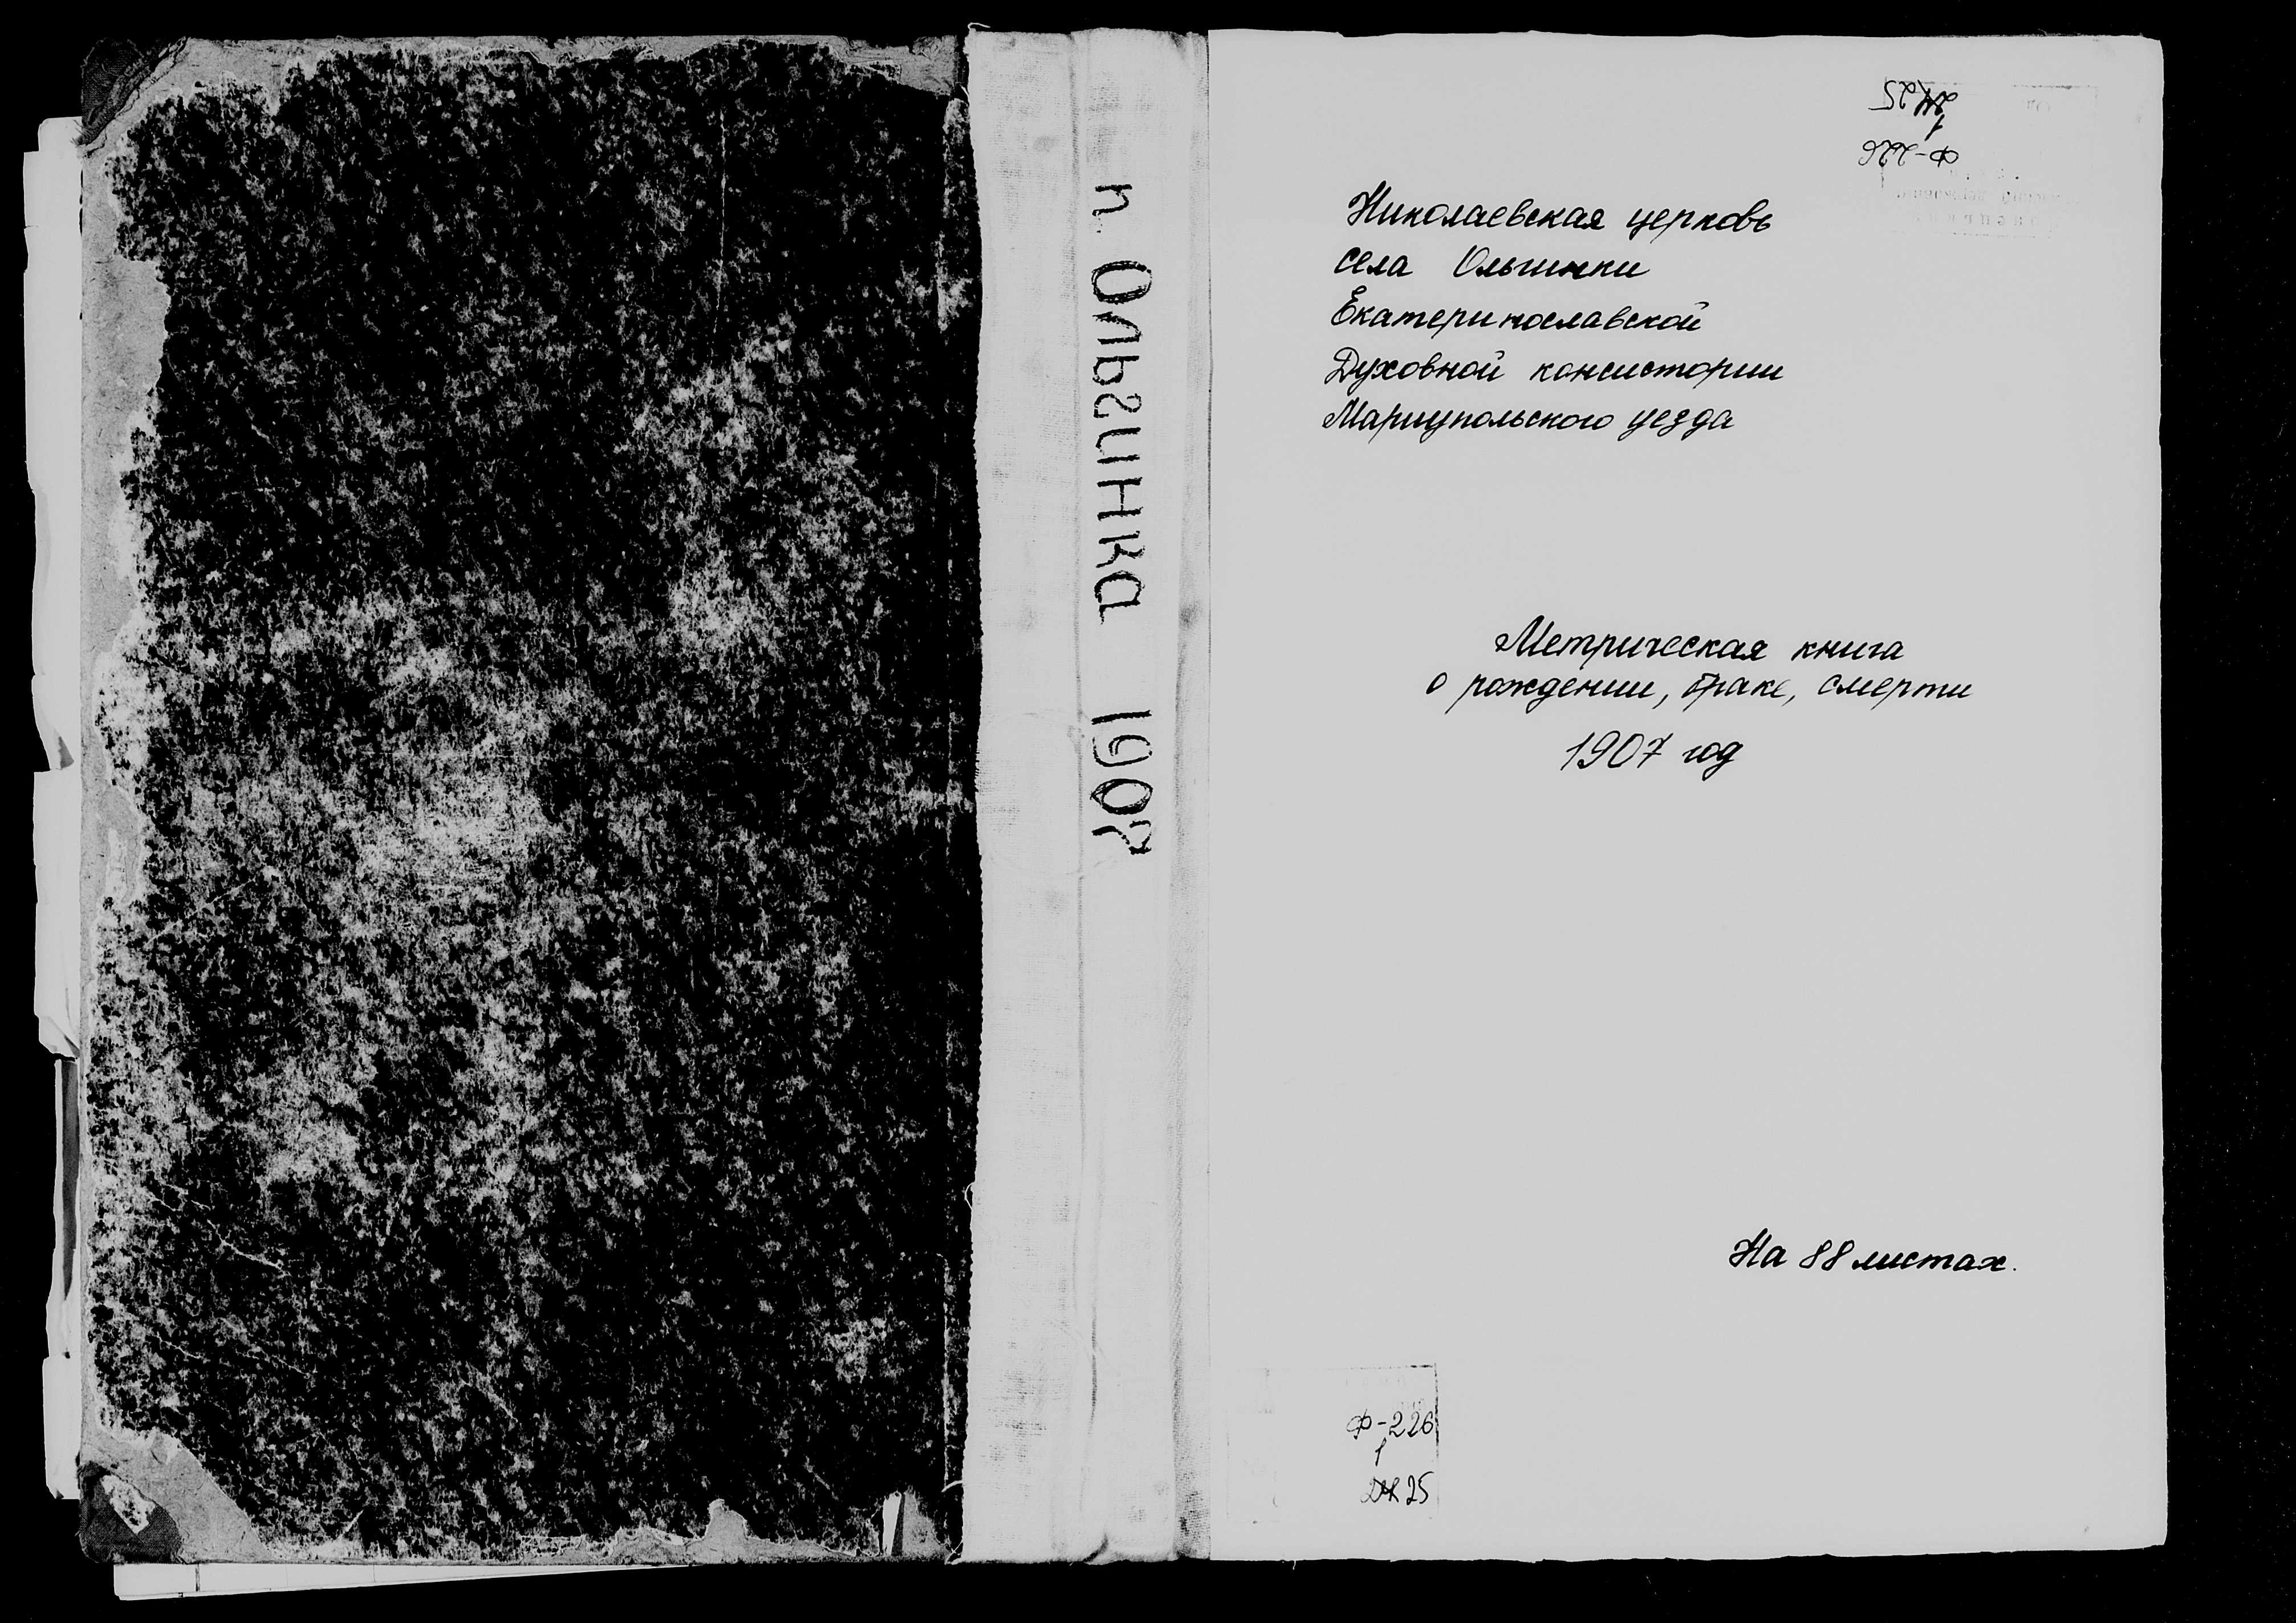 п. Ольгинка 1907
Николаевская церковь
села Ольгинки
Екатеринославской
Духовной консистории
Мариупольского уезда
Метрическая книга
о рождении, браке, смерти
1907 год
На 88 листах.
Ф-226
1
25
Ф-226
1
25